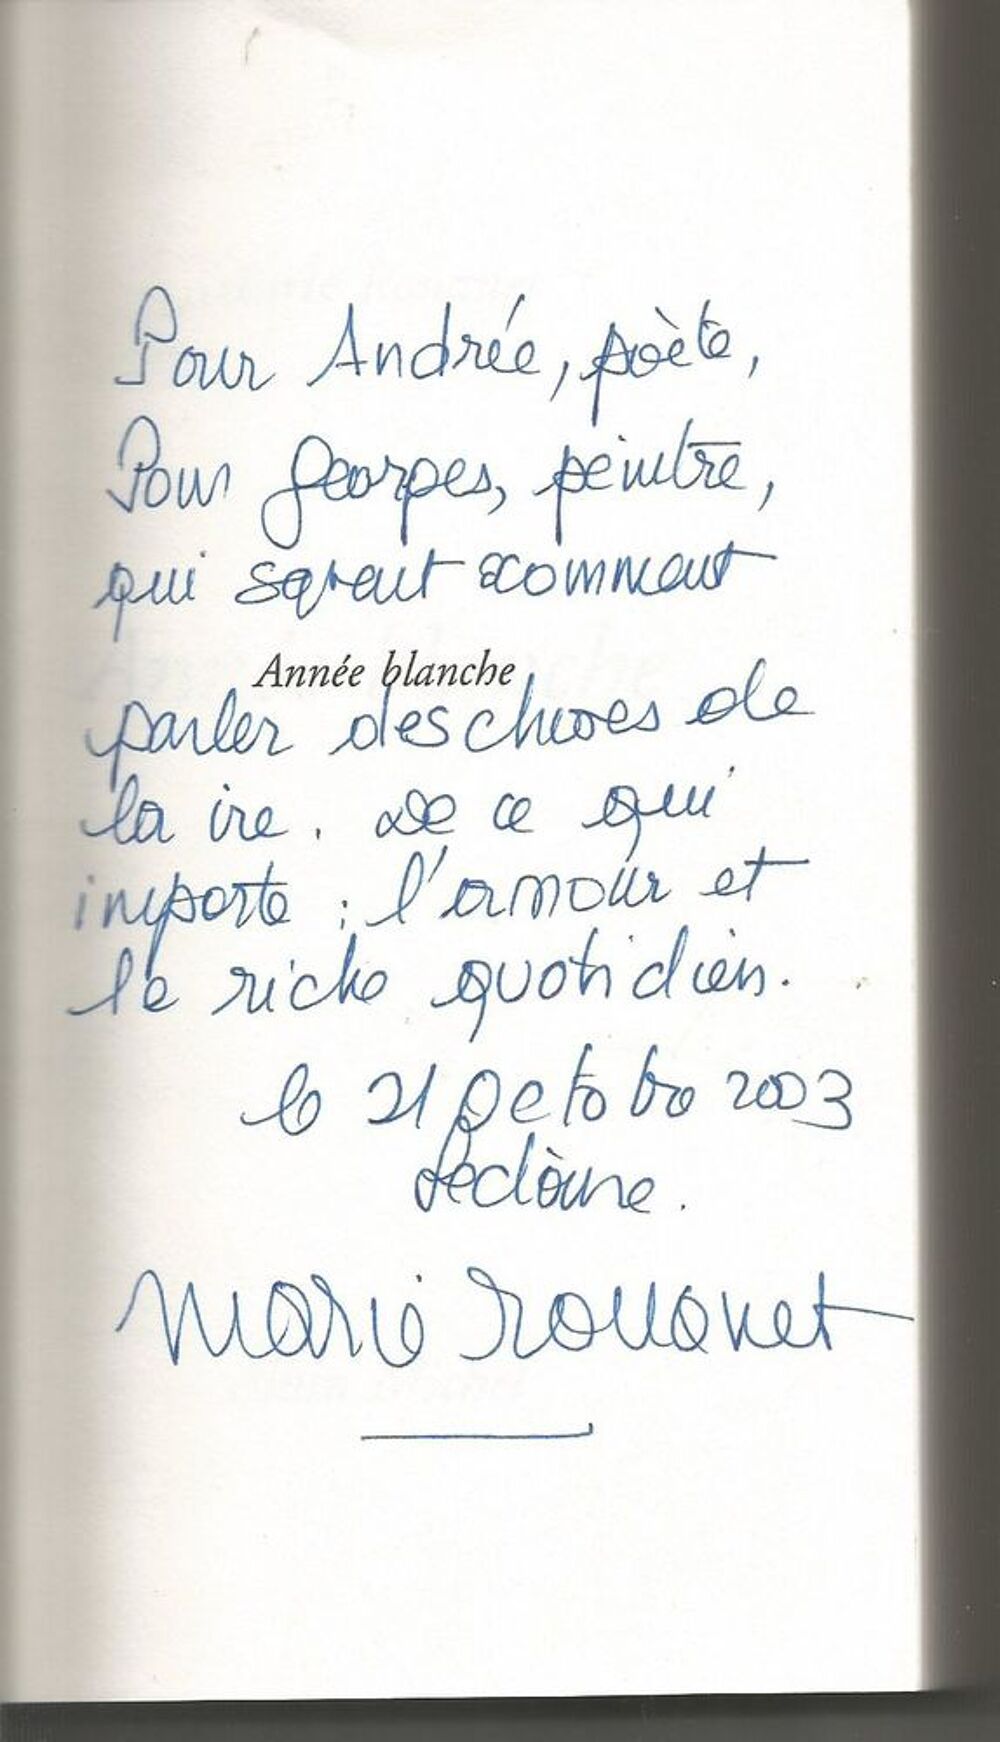 Pour Andrée, poète,
Pour Georges, peintre,
qui savent comment
Année blanche
parler des choses de
la vie. De ce qui
importe : l'amour et
le riche quotidien.
le 21 octobre 2003
Marie Rouanet